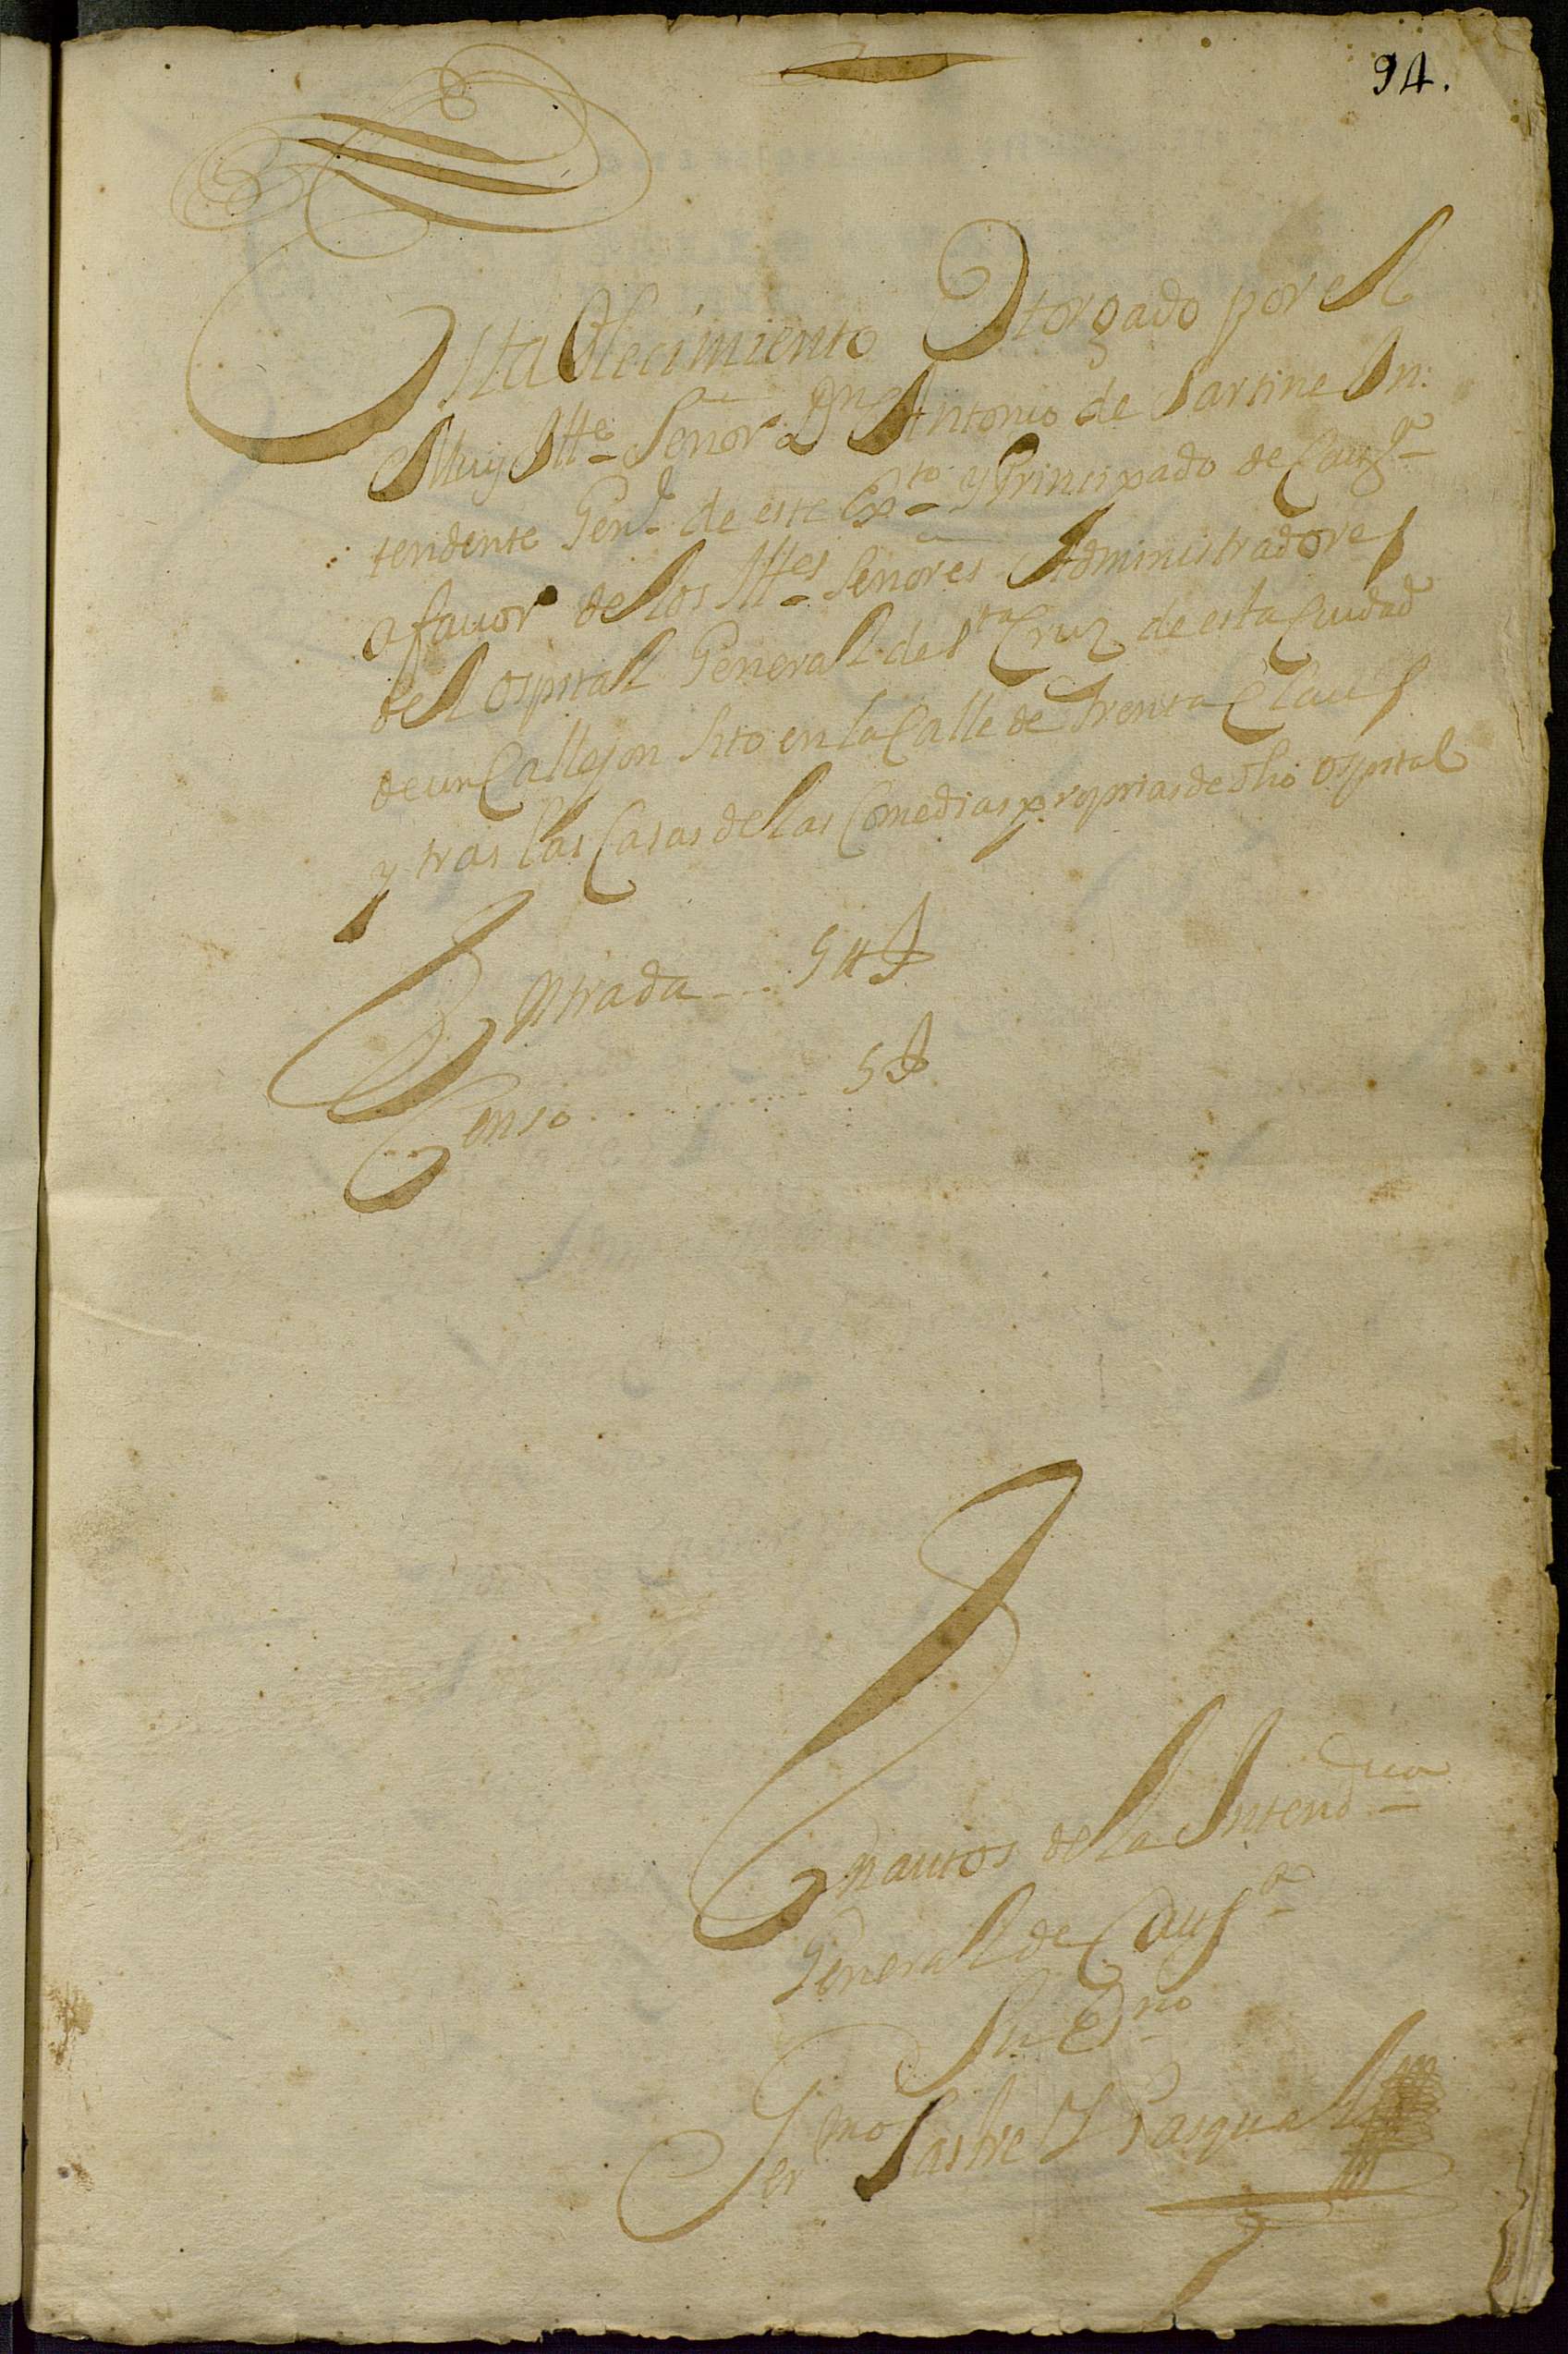 94.
Establecimiento Otorgado por el
Muy Itte. Señor Dn. Antonio de Sartine In:
tendente Genl. de este Exto. y Principado de Catha.
a fauor de los Ittes. Señores Administradores
del ospital General de Sta Cruz de esta Ciudad
de un Callejon Sito en la Calle de Trenta Claus
y tras las Casas de las Comedias proprias de dho ospital
Entrada
Censo
En autos de la Intendcia.
General de Catha.
Su Esno.
Germo Sastre Y Pasqual